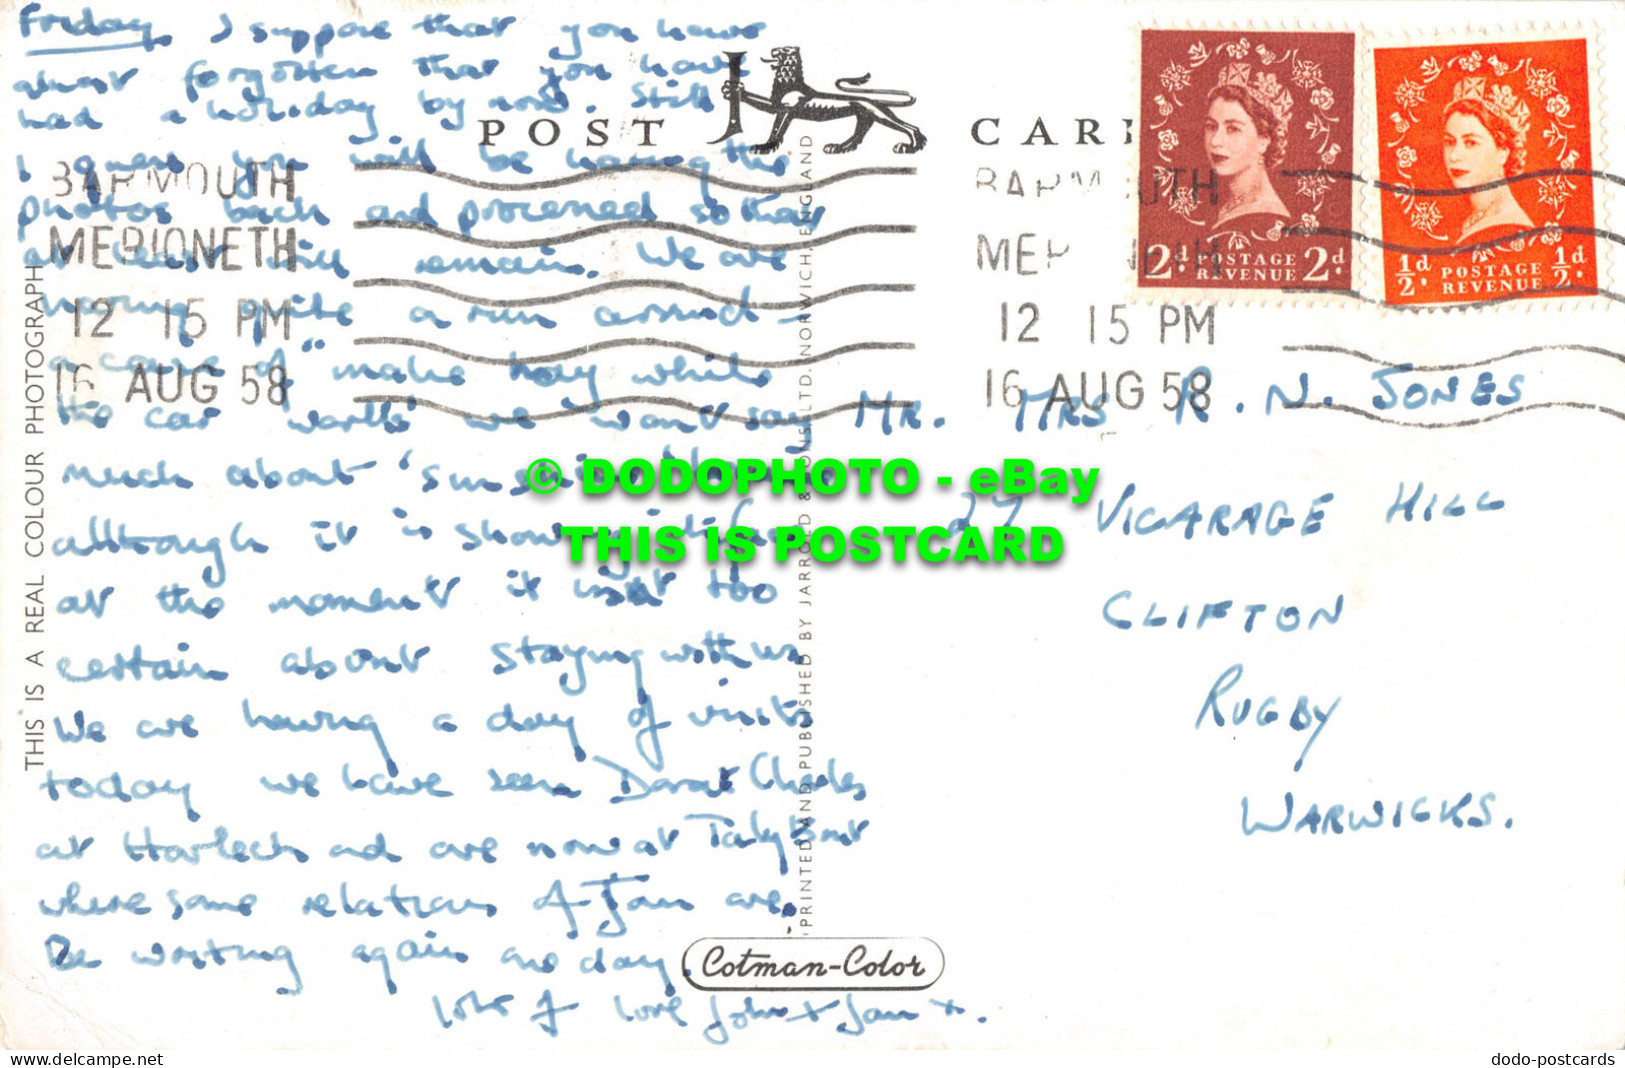 Friday. I suppose that you have
almost forgotten that you have
had a holiday by now. Still
I guess you will be having the
photos back and processed so that
at least will remain. We are
having quite a run around
a case of "make hay while
the car works" we won't say
much about 'sunshine
although it is showing
at the moment it isn't too
certain about staying with us
We are having a day of visits
today we have seen Charles
at Harlech and are now at
where some relations of Jan are.
Be writing again one day.
lots of love John + Jan x.
POST CARD
BARMOUTH
MERIONETH
12 15 PM
16 AUG 58
BARMOUTH
MERIONETH
12 15 PM
16 AUG 58
2d. POSTAGE REVENUE 2d.
½d. POSTAGE REVENUE ½d.
MR. MRS R. N. JONES
27 VICARAGE HILL
CLIFTON
RUGBY
WARWICKS.
THIS IS A REAL COLOUR PHOTOGRAPH
PRINTED AND PUBLISHED BY JARROLD & SONS LTD. NORWICH, ENGLAND
Cotman-Color
© DODOPHOTO - eBay
THIS IS POSTCARD
dodo-postcards